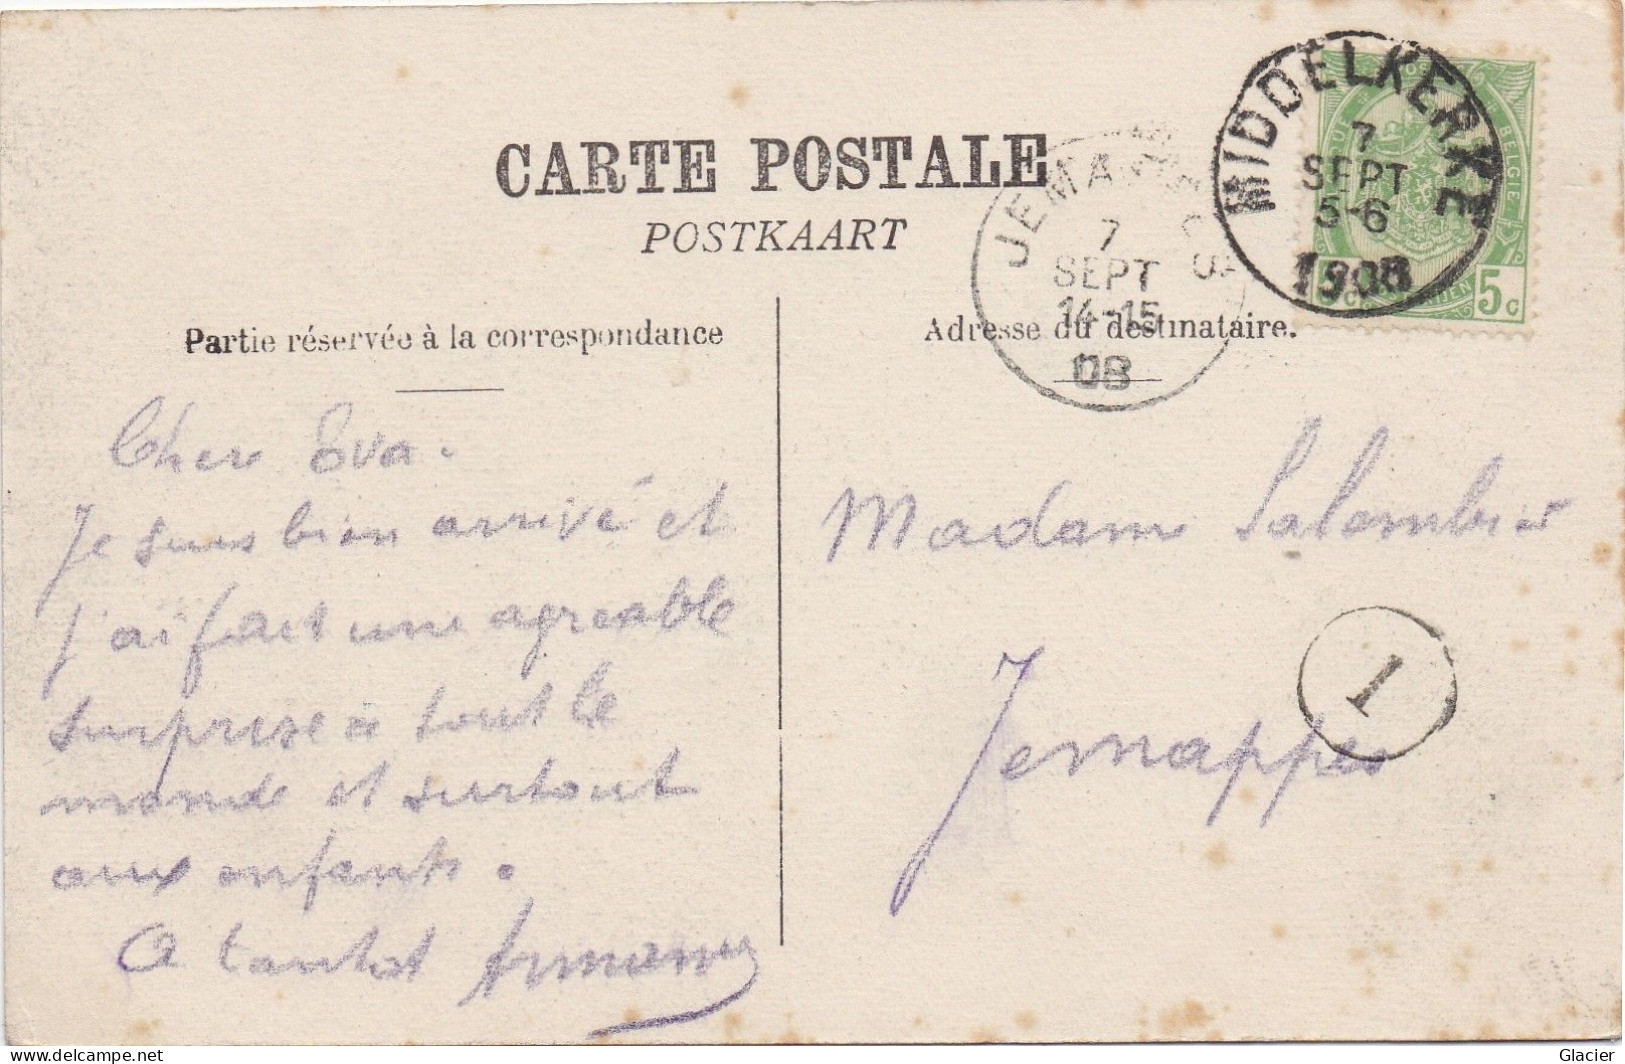 CARTE POSTALE
POSTKAART
Partie réservée à la correspondance
Adresse du destinataire.
MIDDELKERKE
7
SEPT
5-6
1908
JEMAPPES
7
SEPT
14-15
08
BELGIE
5c
5c
Cher Eva.
Je suis bien arrivé et
j'ai fait une agreable
surprise à tout le
monde et surtout
aux enfants.
A tantot
Madame Salembier
Jemappes
1
delcampe.net
Glacier